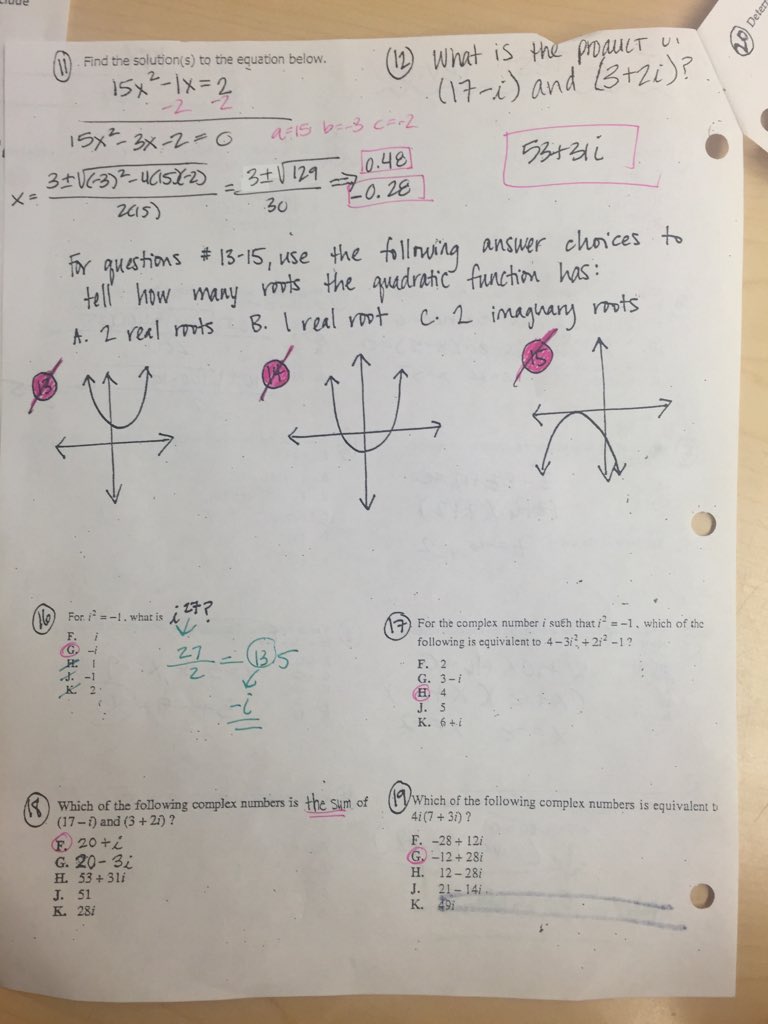 20 Deter
11 Find the solution(s) to the equation below.
15x² - 1x = 2
-2 -2
15x² - 3x - 2 = 0 a=15 b=-3 c=-2
x = 3±√(-3)²-4(15)(-2) / 2(15) = 3±√129 / 30 ⇒ 0.48
-0.28
12 What is the product
(17-i) and (3+2i)?
53+31i
For questions #13-15, use the following answer choices to
tell how many roots the quadratic function has:
A. 2 real roots B. 1 real root C. 2 imaginary roots
13 14 15
16 For i² = -1, what is i²⁷?
F. i
G. -i
H. 1
J. -1
K. 2
27/2 = 13 5
-i
17 For the complex number i such that i² = -1, which of the
following is equivalent to 4 - 3i² + 2i² - 1?
F. 2
G. 3 - i
H. 4
J. 5
K. 6 + i
18 Which of the following complex numbers is the sum of
(17 - i) and (3 + 2i)?
F. 20 + i
G. 20 - 3i
H. 53 + 31i
J. 51
K. 28i
19 Which of the following complex numbers is equivalent t
4i(7 + 3i)?
F. -28 + 12i
G. -12 + 28i
H. 12 - 28i
J. 21 - 14i
K. 49i